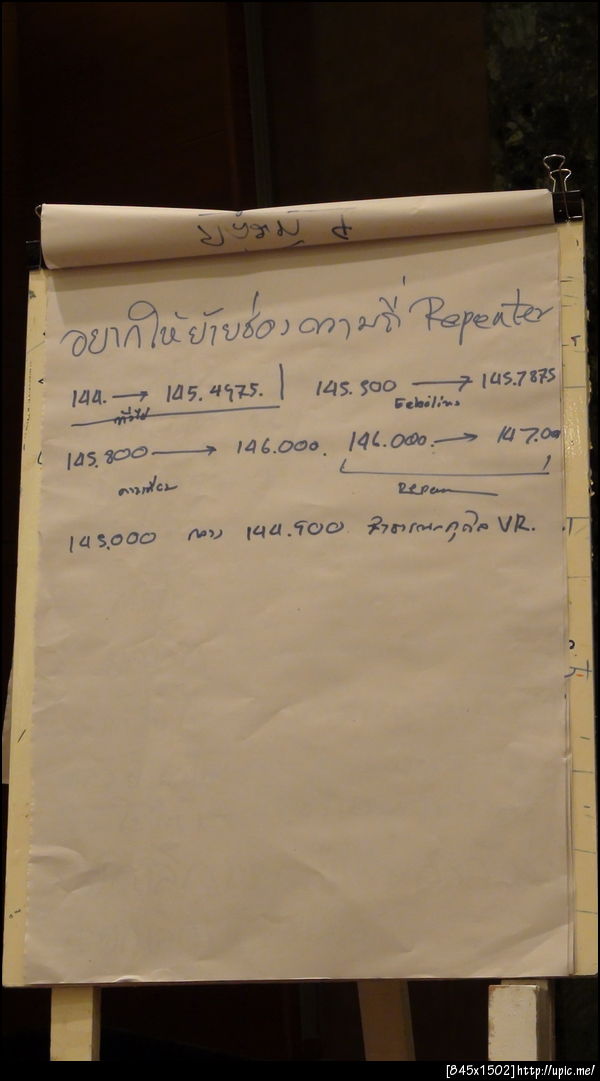 อยากให้ย้ายช่องความถี่ Repeater
144. → 145.4975. | 145.500 → 145.7875
ทั่วไป Echolink
145.800 → 146.000. 146.000. → 147.00
ดาวเทียม
145.000 144.900 สาธารณะกุศล VR.
[845x1502]http://upic.me/